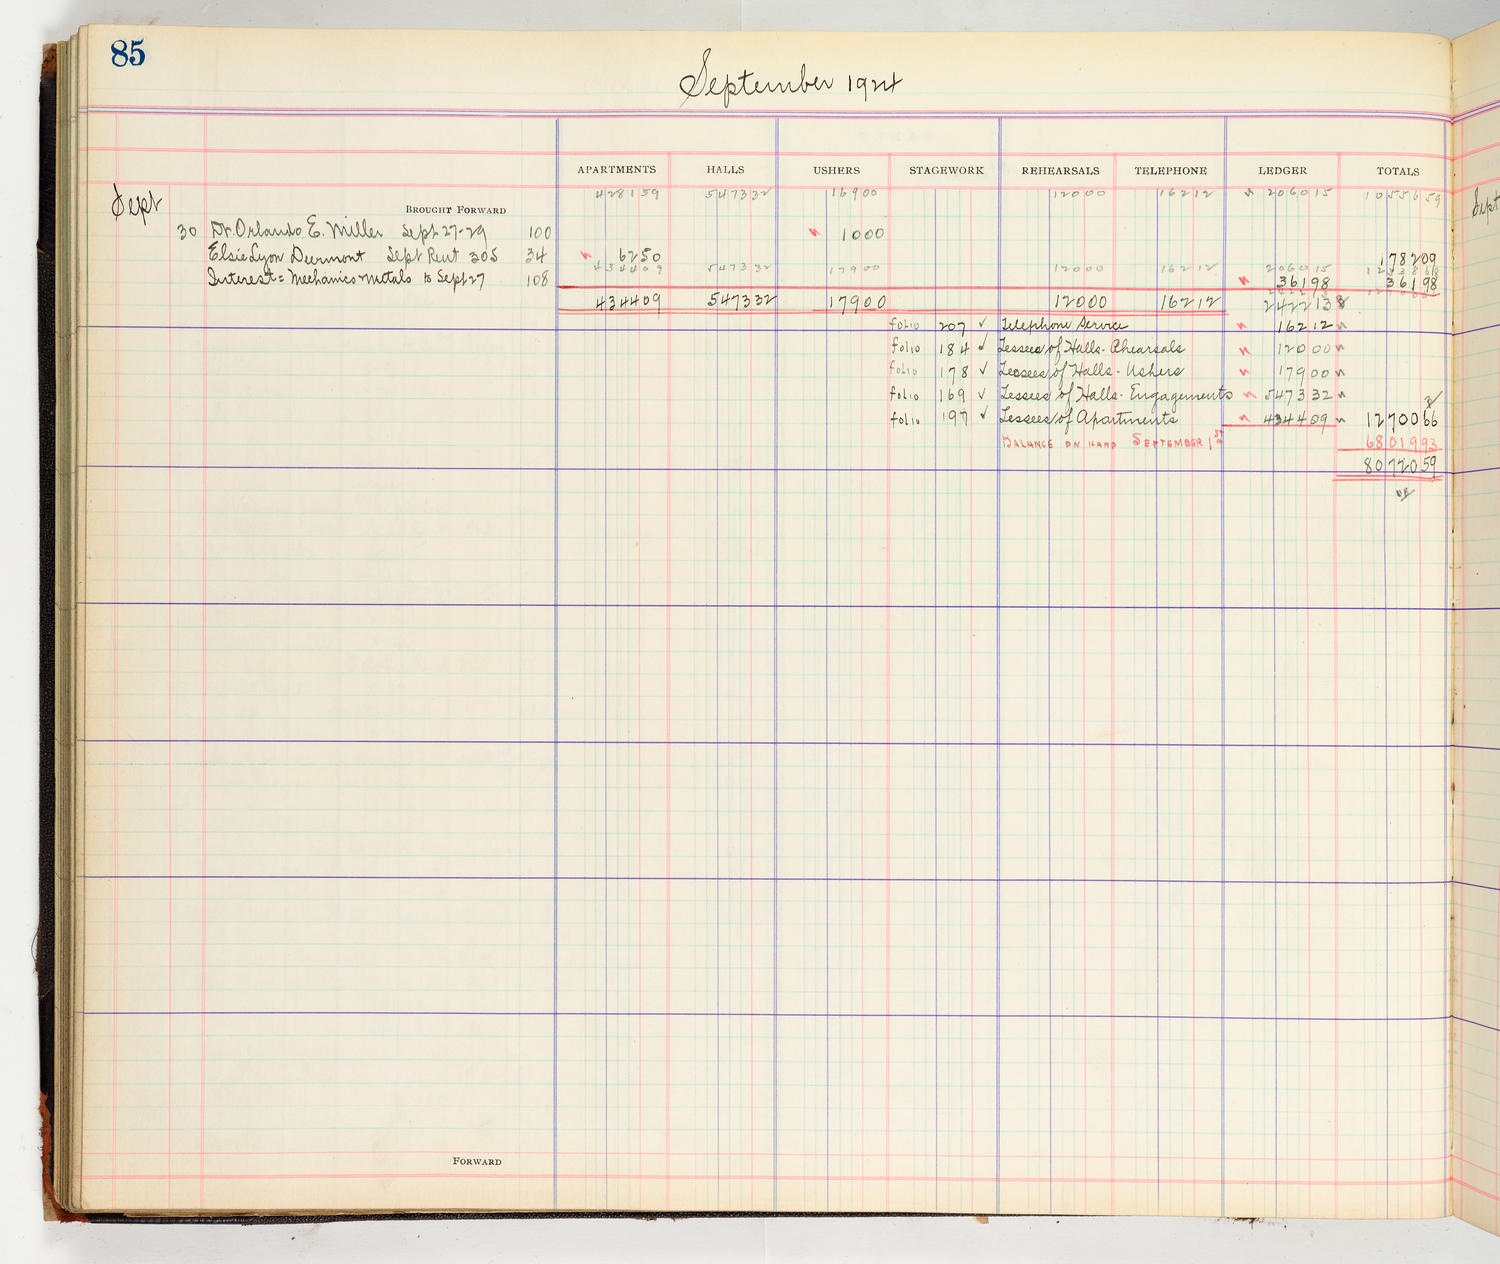 85
September 1924
APARTMENTS HALLS USHERS STAGEWORK REHEARSALS TELEPHONE LEDGER TOTALS
Sept BROUGHT FORWARD 428159 547332 16900 12000 16212 206015 1055659
30 Dr. Orlando E. Miller Sept 27-29 100 1000
Elsie Lyon Dermont Sept Rent 305 34 6250 178209
434409 547332 17900 12000 16212 206015
Interest = Mechanics + Metals to Sept 27 108 36198 36198
434409 547332 17900 12000 16212 242213
folio 207 ✓ Telephone Service 16212
folio 184 ✓ Lessees of Halls - Rhearsals 12000
folio 178 ✓ Lessees of Halls - Ushers 17900
folio 169 ✓ Lessees of Halls - Engagements 547332
folio 197 ✓ Lessees of Apartments 434409 1270066
BALANCE ON HAND SEPTEMBER 1st 6801993
8072059
FORWARD
Sept